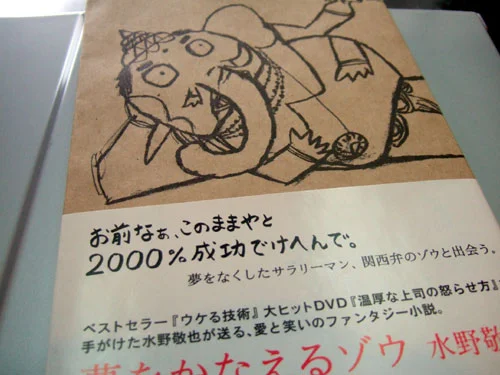 お前なぁ、このままやと
2000%成功でけへんで。
夢をなくしたサラリーマン、関西弁のゾウと出会う。
ベストセラー『ウケる技術』大ヒットDVD『温厚な上司の怒らせ方』
手がけた水野敬也が送る、愛と笑いのファンタジー小説。
夢をかなえるゾウ 水野敬